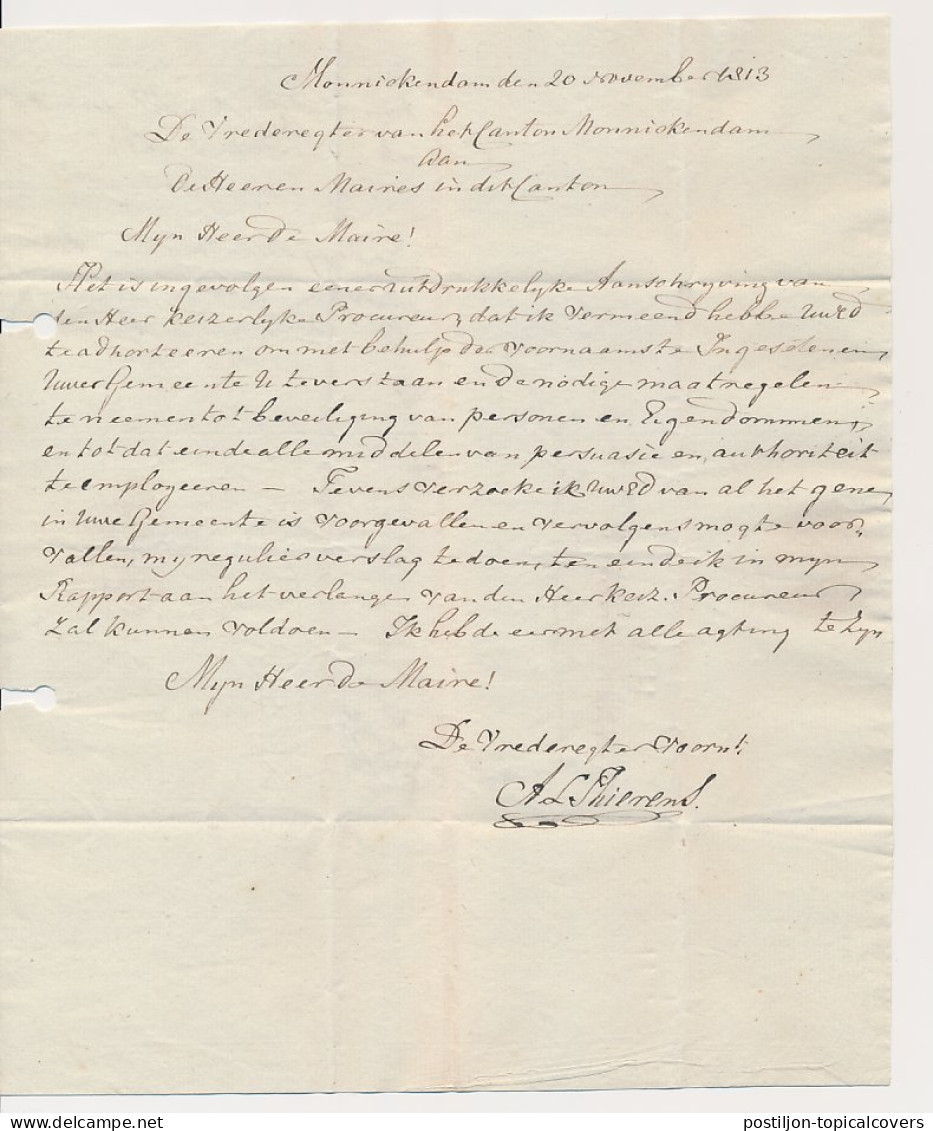 Monnickendam den 20 November 1813
De Vrederegter van het Canton Monnickendam
Aan
De Heeren Maires in dit Canton
Myn Heer De Maire!
Het is ingevolgen eener uitdrukkelyke Aanschryving van
den Heer Keizerlyke Procureur, dat ik vermeend hebbe UwEd
te adhorteeren om met behulp der voornaamste Ingesetenen
Uwer Gemeente U te verstaan en de nodige maatregelen
te neemen tot beveiliging van personen en Eigendommen,
en tot dat einde alle middelen van persuasie en authoriteit
te employeeren — Tevens verzoeke ik UwEd van al het gene
in Uwe Gemeente is voorgevallen en vervolgens mogte voor„
vallen, my regulier verslag te doen, ten einde ik in myn
Rapport aan het verlangen van den Heer Keiz. Procureur
zal kunnen voldoen — Ik heb de eer met alle agting te zyn
Myn Heer De Maire!
De Vrederegter voornt.
A L Thierens.
postiljon-topicalcovers